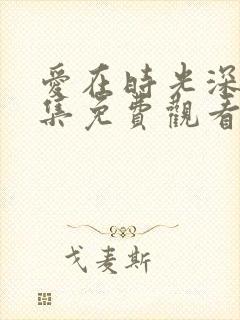 愛在時光深
集免費觀看
戈麦斯